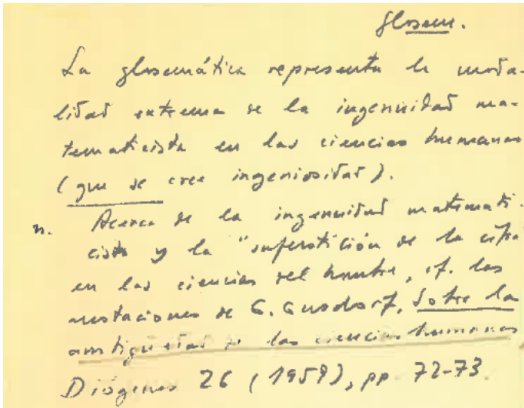 Glosem.
La glosemática representa la moda-
lidad extrema de la ingenuidad ma-
tematicista en las ciencias humanas
(que se cree ingeniosidad).
n. Acerca de la ingenuidad matemati-
cista y la "superstición de la cifra
en las ciencias del hombre, cf. las
anotaciones de G. Gusdorf, Sobre la
ambigüedad de las ciencias humanas
Diógenes 26 (1959), pp. 72-73.